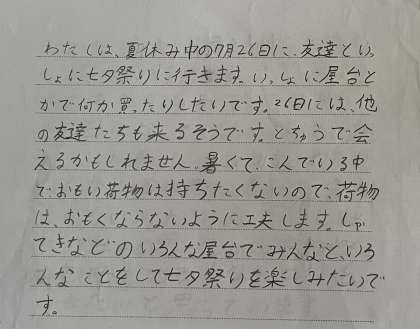 わたしは、夏休み中の7月26日に、友達といっ
しょに七夕祭りに行きます。いっしょに屋台と
かで何か買ったりしたいです。26日には、他
の友達たちも来るそうです。とちゅうで会
えるかもしれません。暑くて、こんでいる中
で、おもい荷物は持ちたくないので、荷物
は、おもくならないように工夫します。しゃ
てきなどのいろんな屋台でみんなと、いろ
んなことをして七夕祭りを楽しみたいで
す。